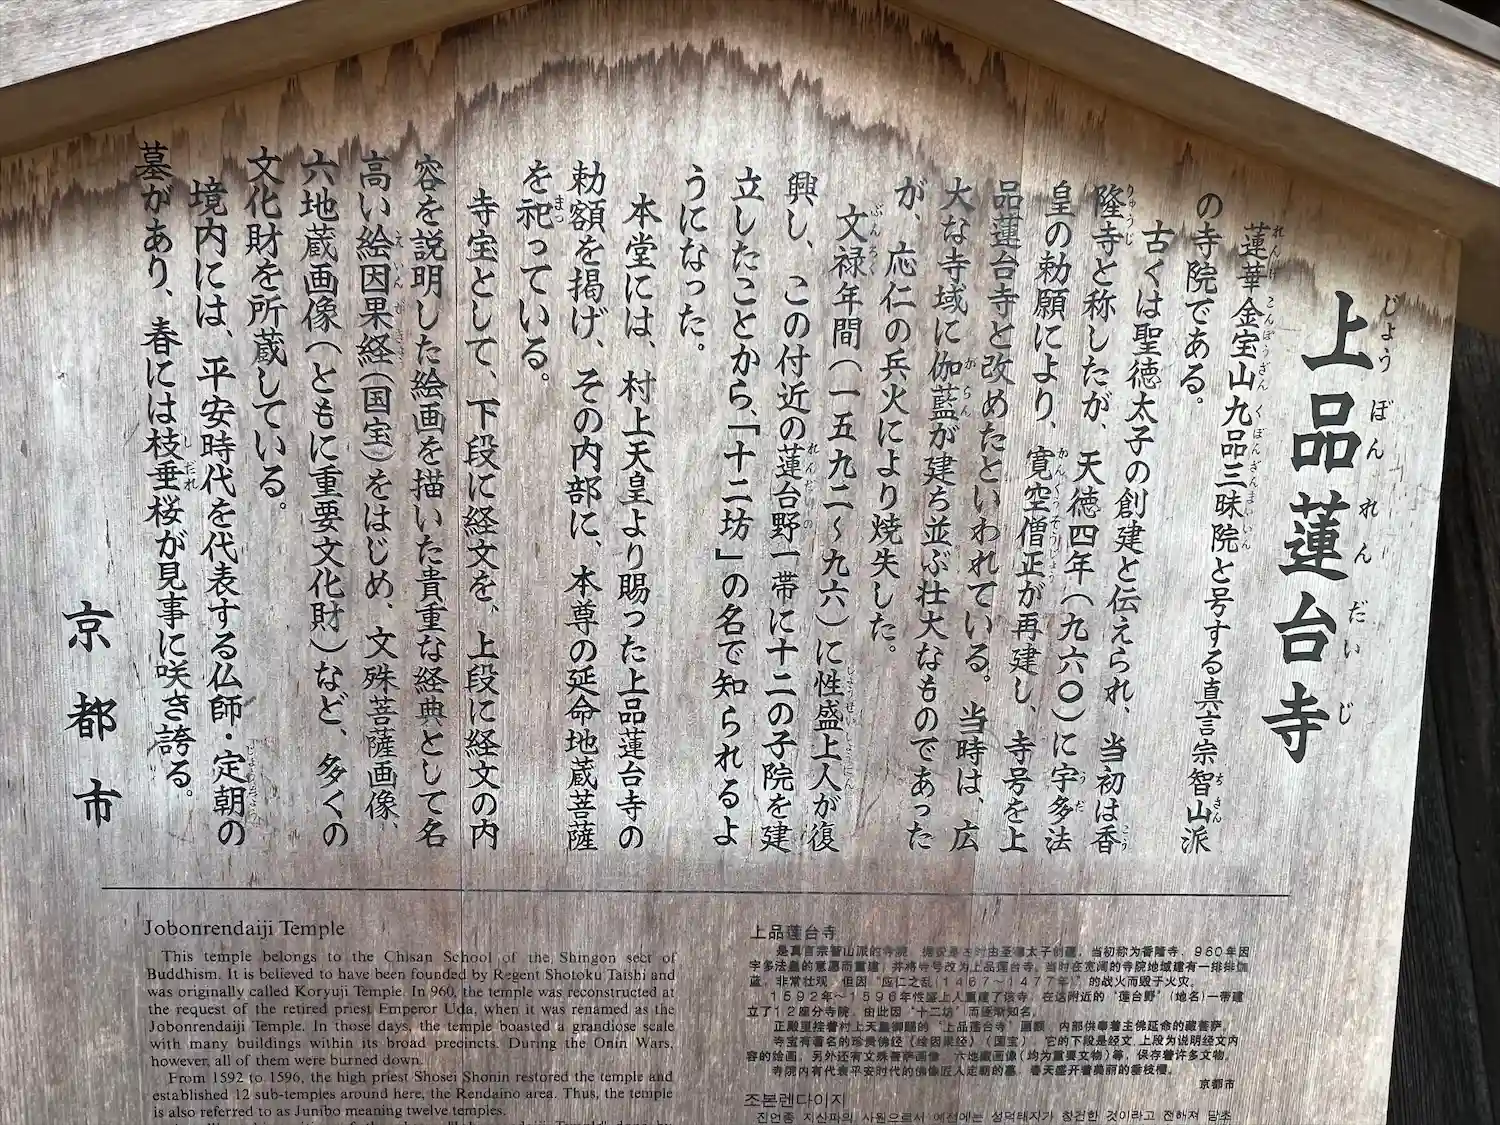 上品蓮台寺
じょうぼんれんだいじ
蓮華金宝山九品三昧院と号する真言宗智山派
の寺院である。
古くは聖徳太子の創建と伝えられ、当初は香
隆寺と称したが、天徳四年（九六〇）に宇多法
皇の勅願により、寛空僧正が再建し、寺号を上
品蓮台寺と改めたといわれている。当時は、広
大な寺域に伽藍が建ち並ぶ壮大なものであった
が、応仁の兵火により焼失した。
文禄年間（一五九二〜九六）に性盛上人が復
興し、この付近の蓮台野一帯に十二の子院を建
立したことから、「十二坊」の名で知られるよ
うになった。
本堂には、村上天皇より賜った上品蓮台寺の
勅額を掲げ、その内部に、本尊の延命地蔵菩薩
を祀っている。
寺宝として、下段に経文を、上段に経文の内
容を説明した絵画を描いた貴重な経典として名
高い絵因果経（国宝）をはじめ、文殊菩薩画像、
六地蔵画像（ともに重要文化財）など、多くの
文化財を所蔵している。
境内には、平安時代を代表する仏師・定朝の
墓があり、春には枝垂桜が見事に咲き誇る。
京都市
Jobonrendaiji Temple
This temple belongs to the Chisan School of the Shingon sect of
Buddhism. It is believed to have been founded by Regent Shotoku Taishi and
was originally called Koryuji Temple. In 960, the temple was reconstructed at
the request of the retired priest Emperor Uda, when it was renamed as the
Jobonrendaiji Temple. In those days, the temple boasted a grandiose scale
with many buildings within its broad precincts. During the Onin Wars,
however, all of them were burned down.
From 1592 to 1596, the high priest Shosei Shonin restored the temple and
established 12 sub-temples around here, the Rendaino area. Thus, the temple
is also referred to as Junibo meaning twelve temples.
上品莲台寺
是真言宗智山派的寺院，据说是古时由圣德太子创建，当初称为香隆寺，960年因
宇多法皇的意愿而重建，并将寺号改为上品莲台寺。当时在宽阔的寺院地域建有一排排伽
蓝，非常壮观，但因“应仁之乱(1467～1477年)”的战火而毁于火灾。
1592年～1596年性盛上人重建了该寺，在这附近的“莲台野”(地名)一带建
立了12座分寺院，由此因“十二坊”而逐渐知名。
正殿里挂着村上天皇御赐的“上品莲台寺”匾额，内部供奉着主佛延命地藏菩萨。
寺宝有著名的珍贵佛经《绘因果经》(国宝)，它的下段是经文，上段为说明经文内
容的绘画，另外还有文殊菩萨画像、六地藏画像(均为重要文物)等，保存着许多文物。
寺院内有代表平安时代的佛像匠人定朝的墓，春天盛开着美丽的垂枝樱。
京都市
조본렌다이지
진언종 지산파의 사원으로서 예전에는 성덕태자가 창건한 것이라고 전해져 당초